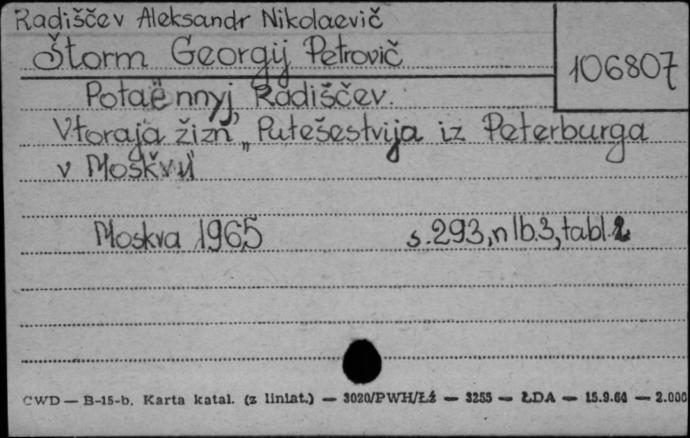 Radiščev Aleksandr Nikolaevič
Štorm Georgij Petrovič
106807
Potaënnyj Radiščev.
Vtoraja žizn' „Putešestvija iz Peterburga
v Moskvu"
Moskva 1965 s.293, nlb.3, tabl.2
CWD — B-15-b. Karta katal. (z liniat.) — 3020/PWH/Łź — 3255 — ŁDA — 15.9.64 — 2.000